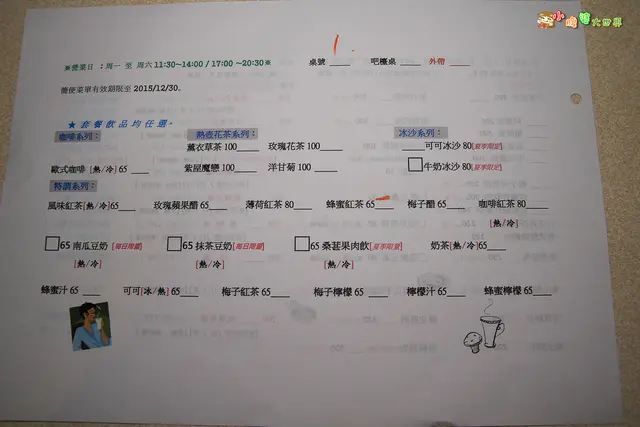 小晴晴大世界
1.
※營業日 : 周一 至 周六 11:30~14:00 / 17:00 ~20:30※ 桌號 ____ 吧檯桌 ____ 外帶 ____
簡便菜單有效期限至 2015/12/30.
★ 套餐飲品均任選~
咖啡系列: 熱壺花茶系列: 冰沙系列:
薰衣草茶 100____ 玫瑰花茶 100____ ____可可冰沙 80[夏季限定]
歐式咖啡 [熱/冷] 65 ____ 紫屋魔戀 100____ 洋甘菊 100____ □牛奶冰沙 80[夏季限定]
特調系列:
風味紅茶[熱/冷]65____ 玫瑰蘋果醋 65____ 薄荷紅茶 80____ 蜂蜜紅茶 65____ 梅子醋 65____ 咖啡紅茶 80____
[熱/冷]
□65 南瓜豆奶 [每日限量] □65 抹茶豆奶[每日限量] □65 桑葚果肉飲[夏季限量] 奶茶[熱/冷]65____
[熱/冷] [熱/冷] [熱/冷]
蜂蜜汁 65____ 可可[冰/熱] 65____ 梅子紅茶 65____ 梅子檸檬 65____ 檸檬汁 65____ 蜂蜜檸檬 65____